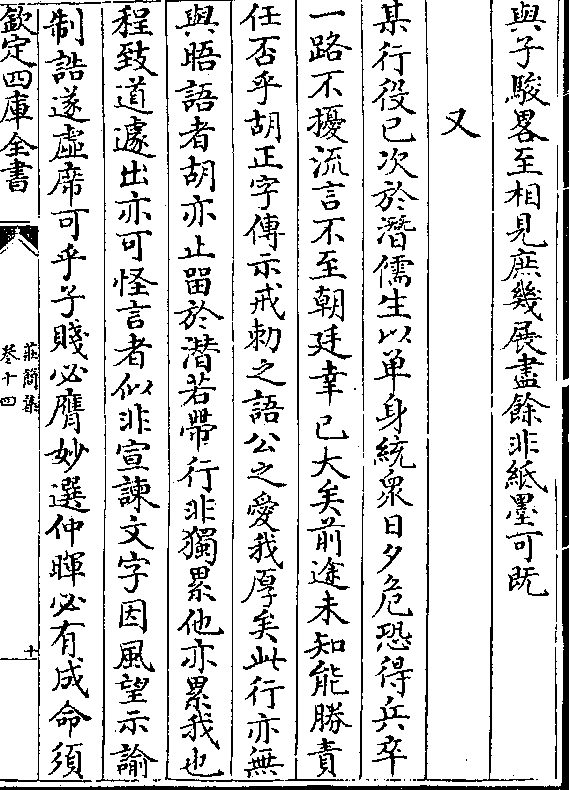 與子駿畧至相見庶幾展盡餘非紙墨可既
又
某行役已次於潛儒生以单身統衆日夕危恐得兵卒
一路不擾流言不至朝廷幸已大矣前途未知能勝責
任否乎胡正字傳示戒勅之語公之愛我厚矣此行亦無
與晤語者胡亦止留於潛若帶行非獨累他亦累我也
程致道遽出亦可怪言者似非宣諫文字因風望示諭
制誥遂虛席可乎子賤必膺妙選仲暉必有成命須
欽定四庫全書
莊簡集
卷十四
十